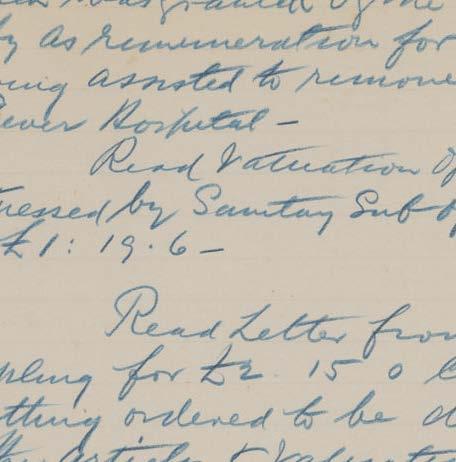 was granted by the
by as remuneration for
ing assisted to remove
Fever Hospital -
Read Valuation of
tressed by Sanitary Sub-o
£1 : 19 . 6 -
Read Letter from
pling for £2 . 15 0
thing ordered to be d
the articles & Valuati